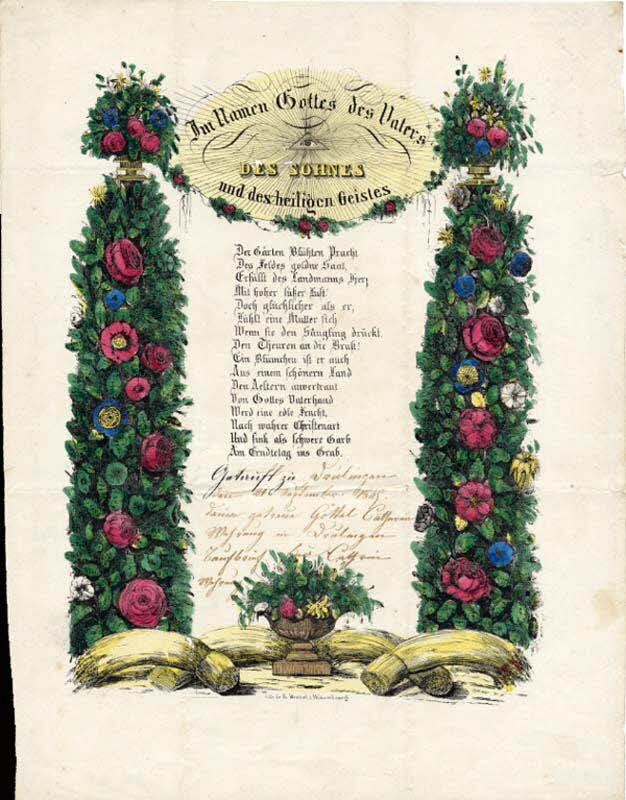 Im Namen Gottes des Vaters
DES SOHNES
und des heiligen Geistes
Der Gärten Blühten Pracht
Des Feldes goldne Saat,
Erfüllt des Landmanns Herz
Mit hoher süßer Lust
Doch glücklicher als er,
Fühlt eine Mutter sich
Wenn sie den Säugling drückt.
Den Theuren an die Brust!
Ein Blümchen ist er auch
Aus einem schönern Land
Den Aeltern anvertraut
Von Gottes Vaterhand
Werd eine edle Frucht,
Nach wahrer Christenart
Und sink als schwere Garb
Am Erndtetag ins Grab.
Getauft zu Drulingen
den September
deine getreue Göttel Catharina
Wehrung in Drulingen
Taufbrief für Cathrin
Wehrung